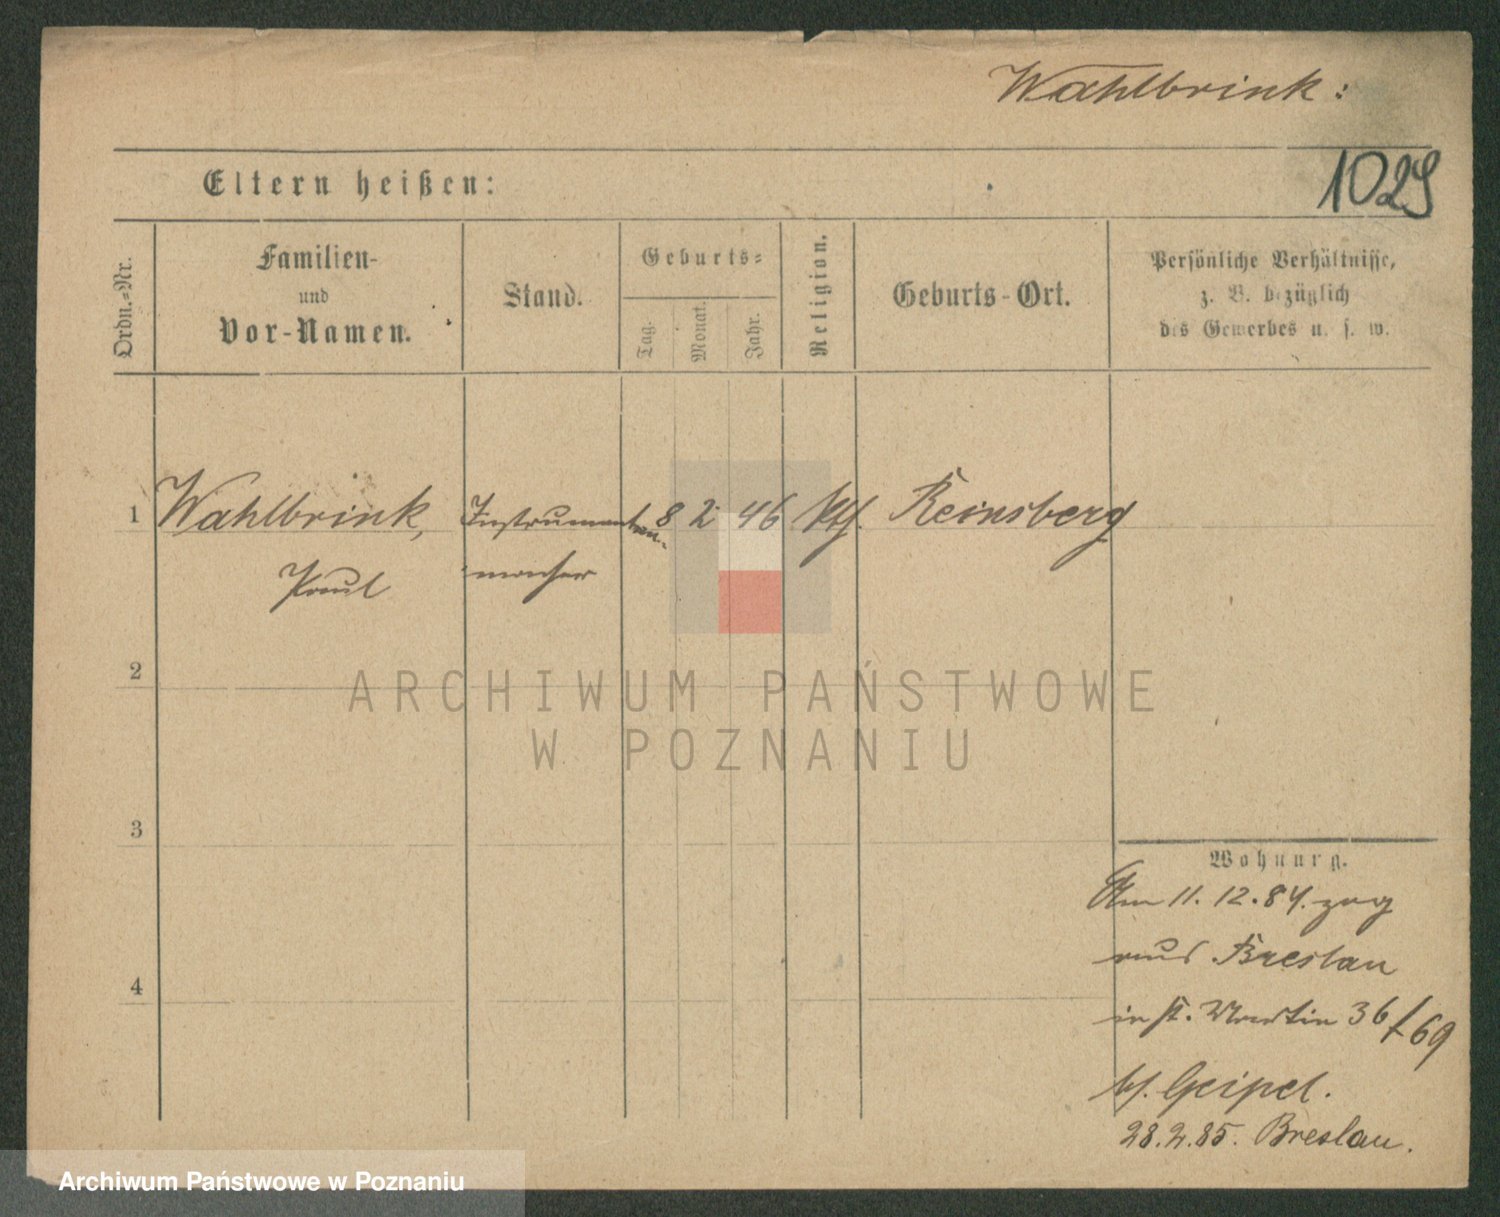 Wahlbrink:
1029
Eltern heißen:
Ordn.=Nr.
Familien-
und
Vor-Namen.
Stand.
Geburts=
Tag.
Monat.
Jahr.
Religion.
Geburts-Ort.
Persönliche Verhältnisse,
z. B. bezüglich
des Gewerbes u. s. w.
1 Wahlbrink, Instrumenten- 8 2 46 kth. Reinsberg
Paul macher
2
ARCHIWUM PAŃSTWOWE
W POZNANIU
3
Wohnung.
Am 11. 12. 84. zug
aus Breslau
in St. Martin 36/69
bei Geipel.
28.2.85. Breslau.
4
Archiwum Państwowe w Poznaniu